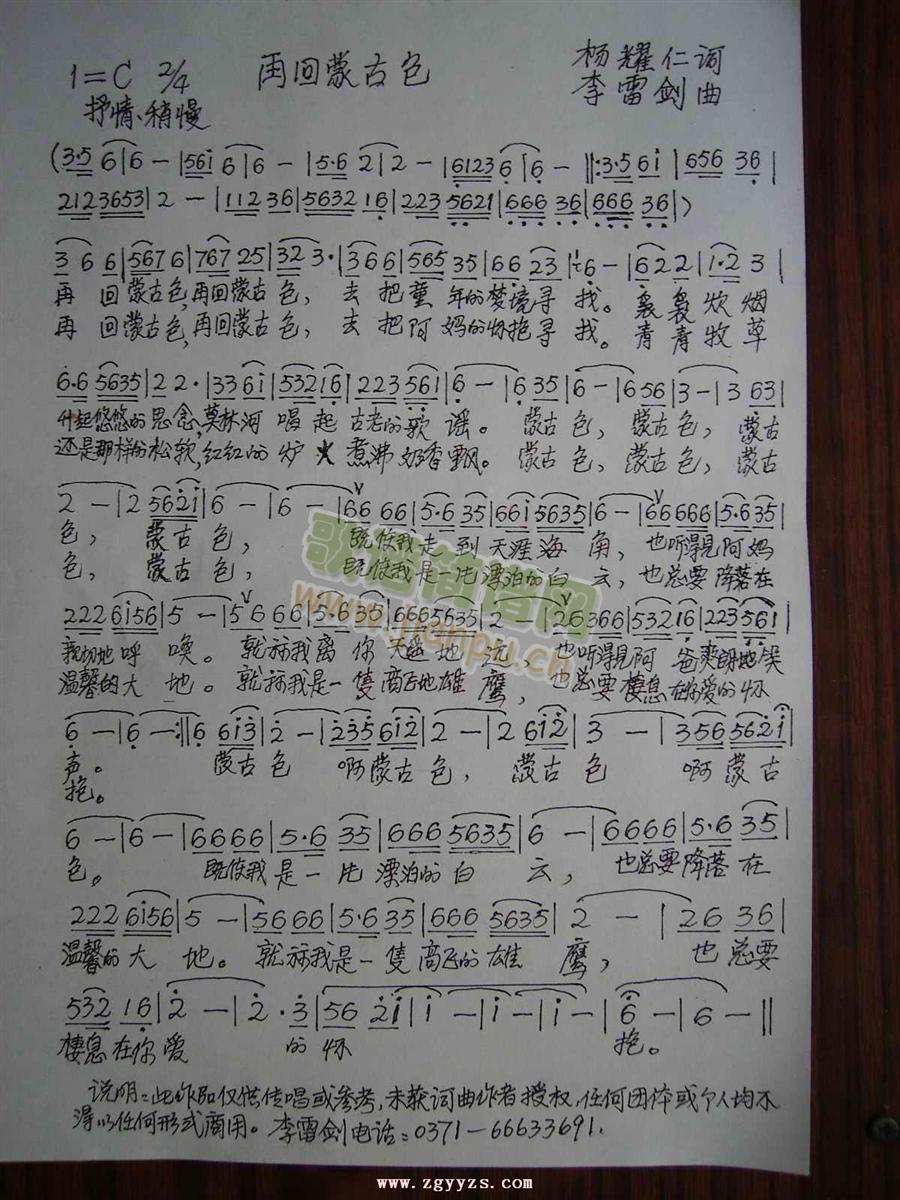 再回蒙古色
杨耀仁词
1=C 2/4
李雷剑曲
抒情、稍慢
(3·5 6|6 - |561 6|6 - |5·6 2|2 - |6123 6|6 - ‖:3·5 61|656 36|
2123653|2 - |112 36|5632 16|223 5621|666 36|666 36|)
3 6 6|567 6|767 25|32 3·|3 6 6|565 35|66 23|6 - |6 2 2|1·2 3|
再 回蒙古色,再回蒙古 色, 去 把童 年的梦境寻 找。袅 袅 炊 烟
再 回蒙古色,再回蒙古 色, 去 把阿 妈的怀抱寻 找。青 青 牧 草
6·6 5635|2 2·|33 61|532 16|223 561|6 - |6 35|6 - |6 56|3 - |3 63|
升起悠悠的思念,莫林河 唱 起 古老的歌 谣。 蒙古 色, 蒙古 色, 蒙古
还是那样的松软,红红的 炉 火 煮沸 奶香飘。 蒙古 色, 蒙古 色, 蒙古
2 - |2 5621|6 - |6 - |66 66|5·6 35|661 5635|6 - |66666|5·635|
色, 蒙古色, 既使我走 到 天涯海 角, 也听得见阿妈
色, 蒙古色, 既使我是一片漂泊的白 云, 也总要降落在
222 6156|5 - |5 6 66|5·6 35|6665635|2 - |26366|532 16|223 561|
亲切地 呼 唤。 就祘我离 你 天遥 地 远, 也听得见阿 爸爽朗地笑
温馨的大 地。 就祘我是一 隻高飞地雄 鹰, 也总要棲息在你爱的怀
6 - |6 - :‖6 613|2 - |235 612|2 - |2 612|3 - |356 5621|
声。 蒙古色 啊蒙古色, 蒙古色 啊蒙古
抱。
6 - |6 - |6666|5·6 35|666 5635|6 - |6666|5·6 35|
色。 既使我是一片 漂泊的白 云, 也总要降落在
222 6156|5 - |5666|5·6 35|666 5635|2 - |26 36|
温馨的大 地。 就祘我是一 隻 高飞的雄 鹰, 也 总要
532 16|2 - |2·3|56 21|1 - |1 - |1 - |6 - |6 - ‖
棲息在你爱 的 怀 抱。
说明:此作品仅供传唱或参考,未获词曲作者授权,任何团体或个人均不
得以任何形式商用。李雷剑电话:0371-66633691.
歌谱简谱网
www.jianpu.cn
www.zgyyzs.com